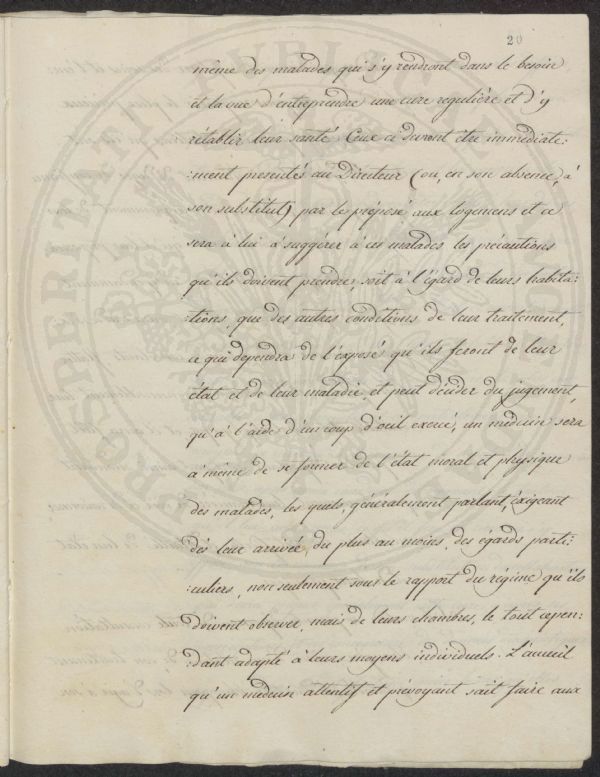 20
même des malades qui s'y rendront dans le besoin
et la vue d'entreprendre une cure regulière et d'y
rétablir leur santé Ceux ci devront être immédiate:
:ment presentés au Directeur (ou, en son absence, à
son substitut) par le préposé aux logemens et ce
sera à lui à suggérer à ces malades les précautions
qu'ils doivent prendre, soit à l'égard de leurs habita:
:tions, que des autres conditions de leur traitement,
ce qui dependra de l'exposé qu'ils feront de leur
état et de leur maladie et peut décider du jugement,
qu'à l'aide d'un coup d'oeil exercé, un médecin sera
à même de se former de l'état moral et physique
des malades, les quels, généralement parlant, exigeant
dès leur arrivée, du plus au moins, des égards parti:
:culiers, non seulement sous le rapport du régime qu'ils
doivent observer, mais de leurs chambres, le tout cepen:
:dant adapté à leurs moyens individuels. L'acueil
qu'un médecin attentif et prévoyant sait faire aux